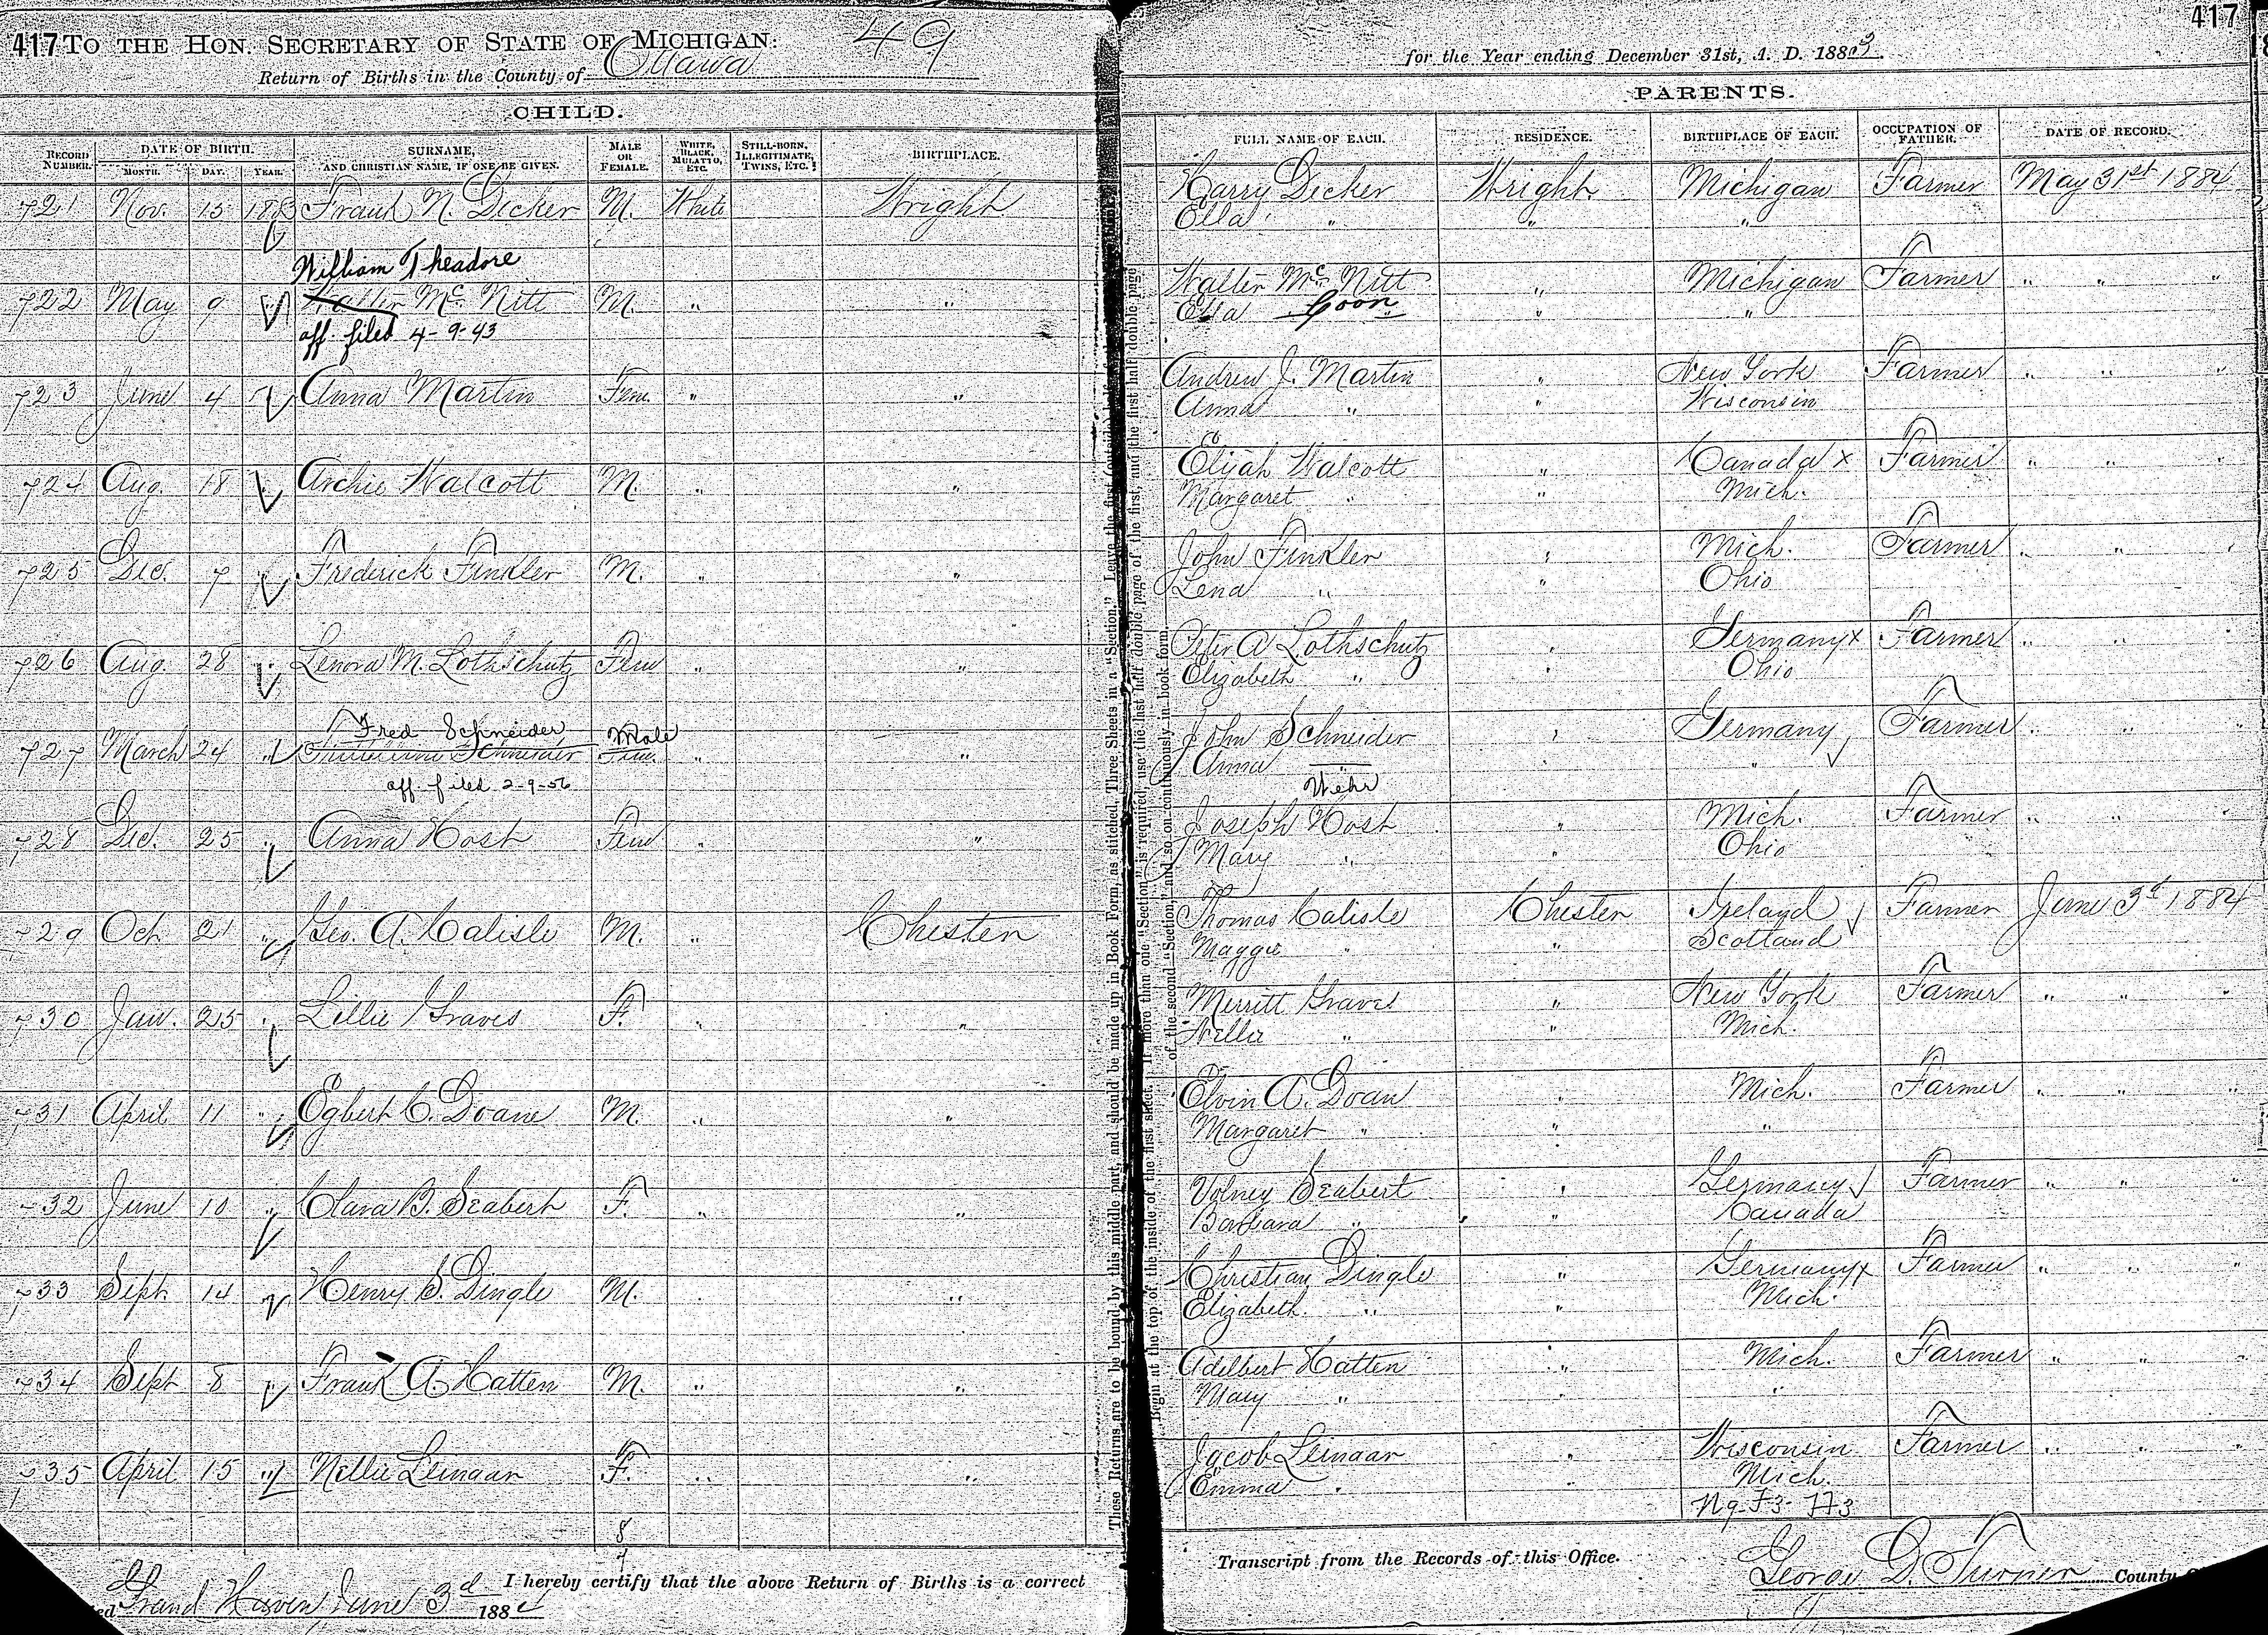 417 TO THE HON. SECRETARY OF STATE OF MICHIGAN: 49
Return of Births in the County of Ottawa
CHILD.
RECORD NUMBER. DATE OF BIRTH. MONTH. DAY. YEAR. SURNAME, AND CHRISTIAN NAME, IF ONE BE GIVEN. MALE OR FEMALE. WHITE, BLACK, MULATTO, ETC. STILL-BORN, ILLEGITIMATE, TWINS, ETC. BIRTHPLACE.
721 Nov. 15 1883 Frank N. Decker M. White Wright
William Theadore
722 May 9 " Walter Mc Nitt M. " "
aff filed 4-9-43
723 June 4 " Anna Martin Fem. " "
724 Aug. 18 " Archie Walcott M. " "
725 Dec. 7 " Frederick Finkler M. " "
726 Aug. 28 " Lenora M. Lothschutz Fem " "
Fred Schneider Male
727 March 24 " Schneider Fem. " "
aff. filed 2-9-56
728 Dec. 25 " Anna Host Fem " "
729 Oct 21 " Geo. A. Calisle M. " Chester
730 Jan. 25 " Lillie Graves F. " "
731 April 11 " Egbert C. Doane M. " "
732 June 10 " Clara B. Seabert F. " "
733 Sept. 14 " Henry S. Dingle M. " "
734 Sept 8 " Frank A. Hatten M. " "
735 April 15 " Nellie Leinaar F. " "
8
7
I hereby certify that the above Return of Births is a correct
Grand Haven June 3d 1884
These Returns are to be bound by this middle part, and should be made up in Book Form, as stitched, Three Sheets in a "Section."
Begin at the top of the inside of the first sheet. If more than one "Section" is required, use the last half double page of the first, and the first half double page
of the second "Section," and so on continuously in book form.
417
for the Year ending December 31st, A. D. 1883.
PARENTS.
FULL NAME OF EACH. RESIDENCE. BIRTHPLACE OF EACH. OCCUPATION OF FATHER. DATE OF RECORD.
Harry Decker Wright. Michigan Farmer May 31st 1884
Ella " " "
Walter Mc Nitt " Michigan Farmer " " "
Ella Coon " "
Andrew J. Martin " New York Farmer " " "
Anna " " Wisconsin
Elijah Walcott " Canada x Farmer " " "
Margaret " " Mich.
John Finkler " Mich. Farmer " " "
Lena " " Ohio
Peter A Lothschutz " Germany x Farmer " "
Elizabeth " " Ohio
John Schneider " Germany Farmer " " "
Anna " "
Wehr
Joseph Host " Mich. Farmer " " "
Mary " " Ohio
Thomas Calisle Chester Ireland Farmer June 3d 1884
Maggie " " Scotland
Merritt Graves " New York Farmer " " "
Nellie " " Mich.
Elvin A. Doan " Mich. Farmer " " "
Margaret " " "
Volney Seabert " Germany Farmer " " "
Barbara " " Canada
Christian Dingle " Germany x Farmer " " "
Elizabeth " " Mich.
Adelbert Hatten " Mich. Farmer " " "
Mary " " "
Jacob Leinaar " Wisconsin Farmer " " "
Emma " " Mich.
Transcript from the Records of this Office.
George D. Turner County